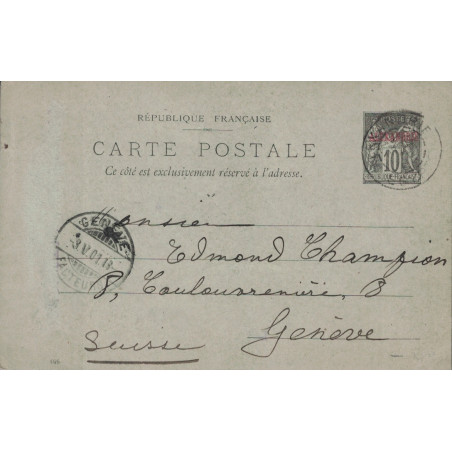 RÉPUBLIQUE FRANÇAISE
CARTE POSTALE
Ce côté est exclusivement réservé à l'adresse.
10
Monsieur
Edmond Champion
8, Coulouvrenière, 8
Genève
Suisse
GENÈVE